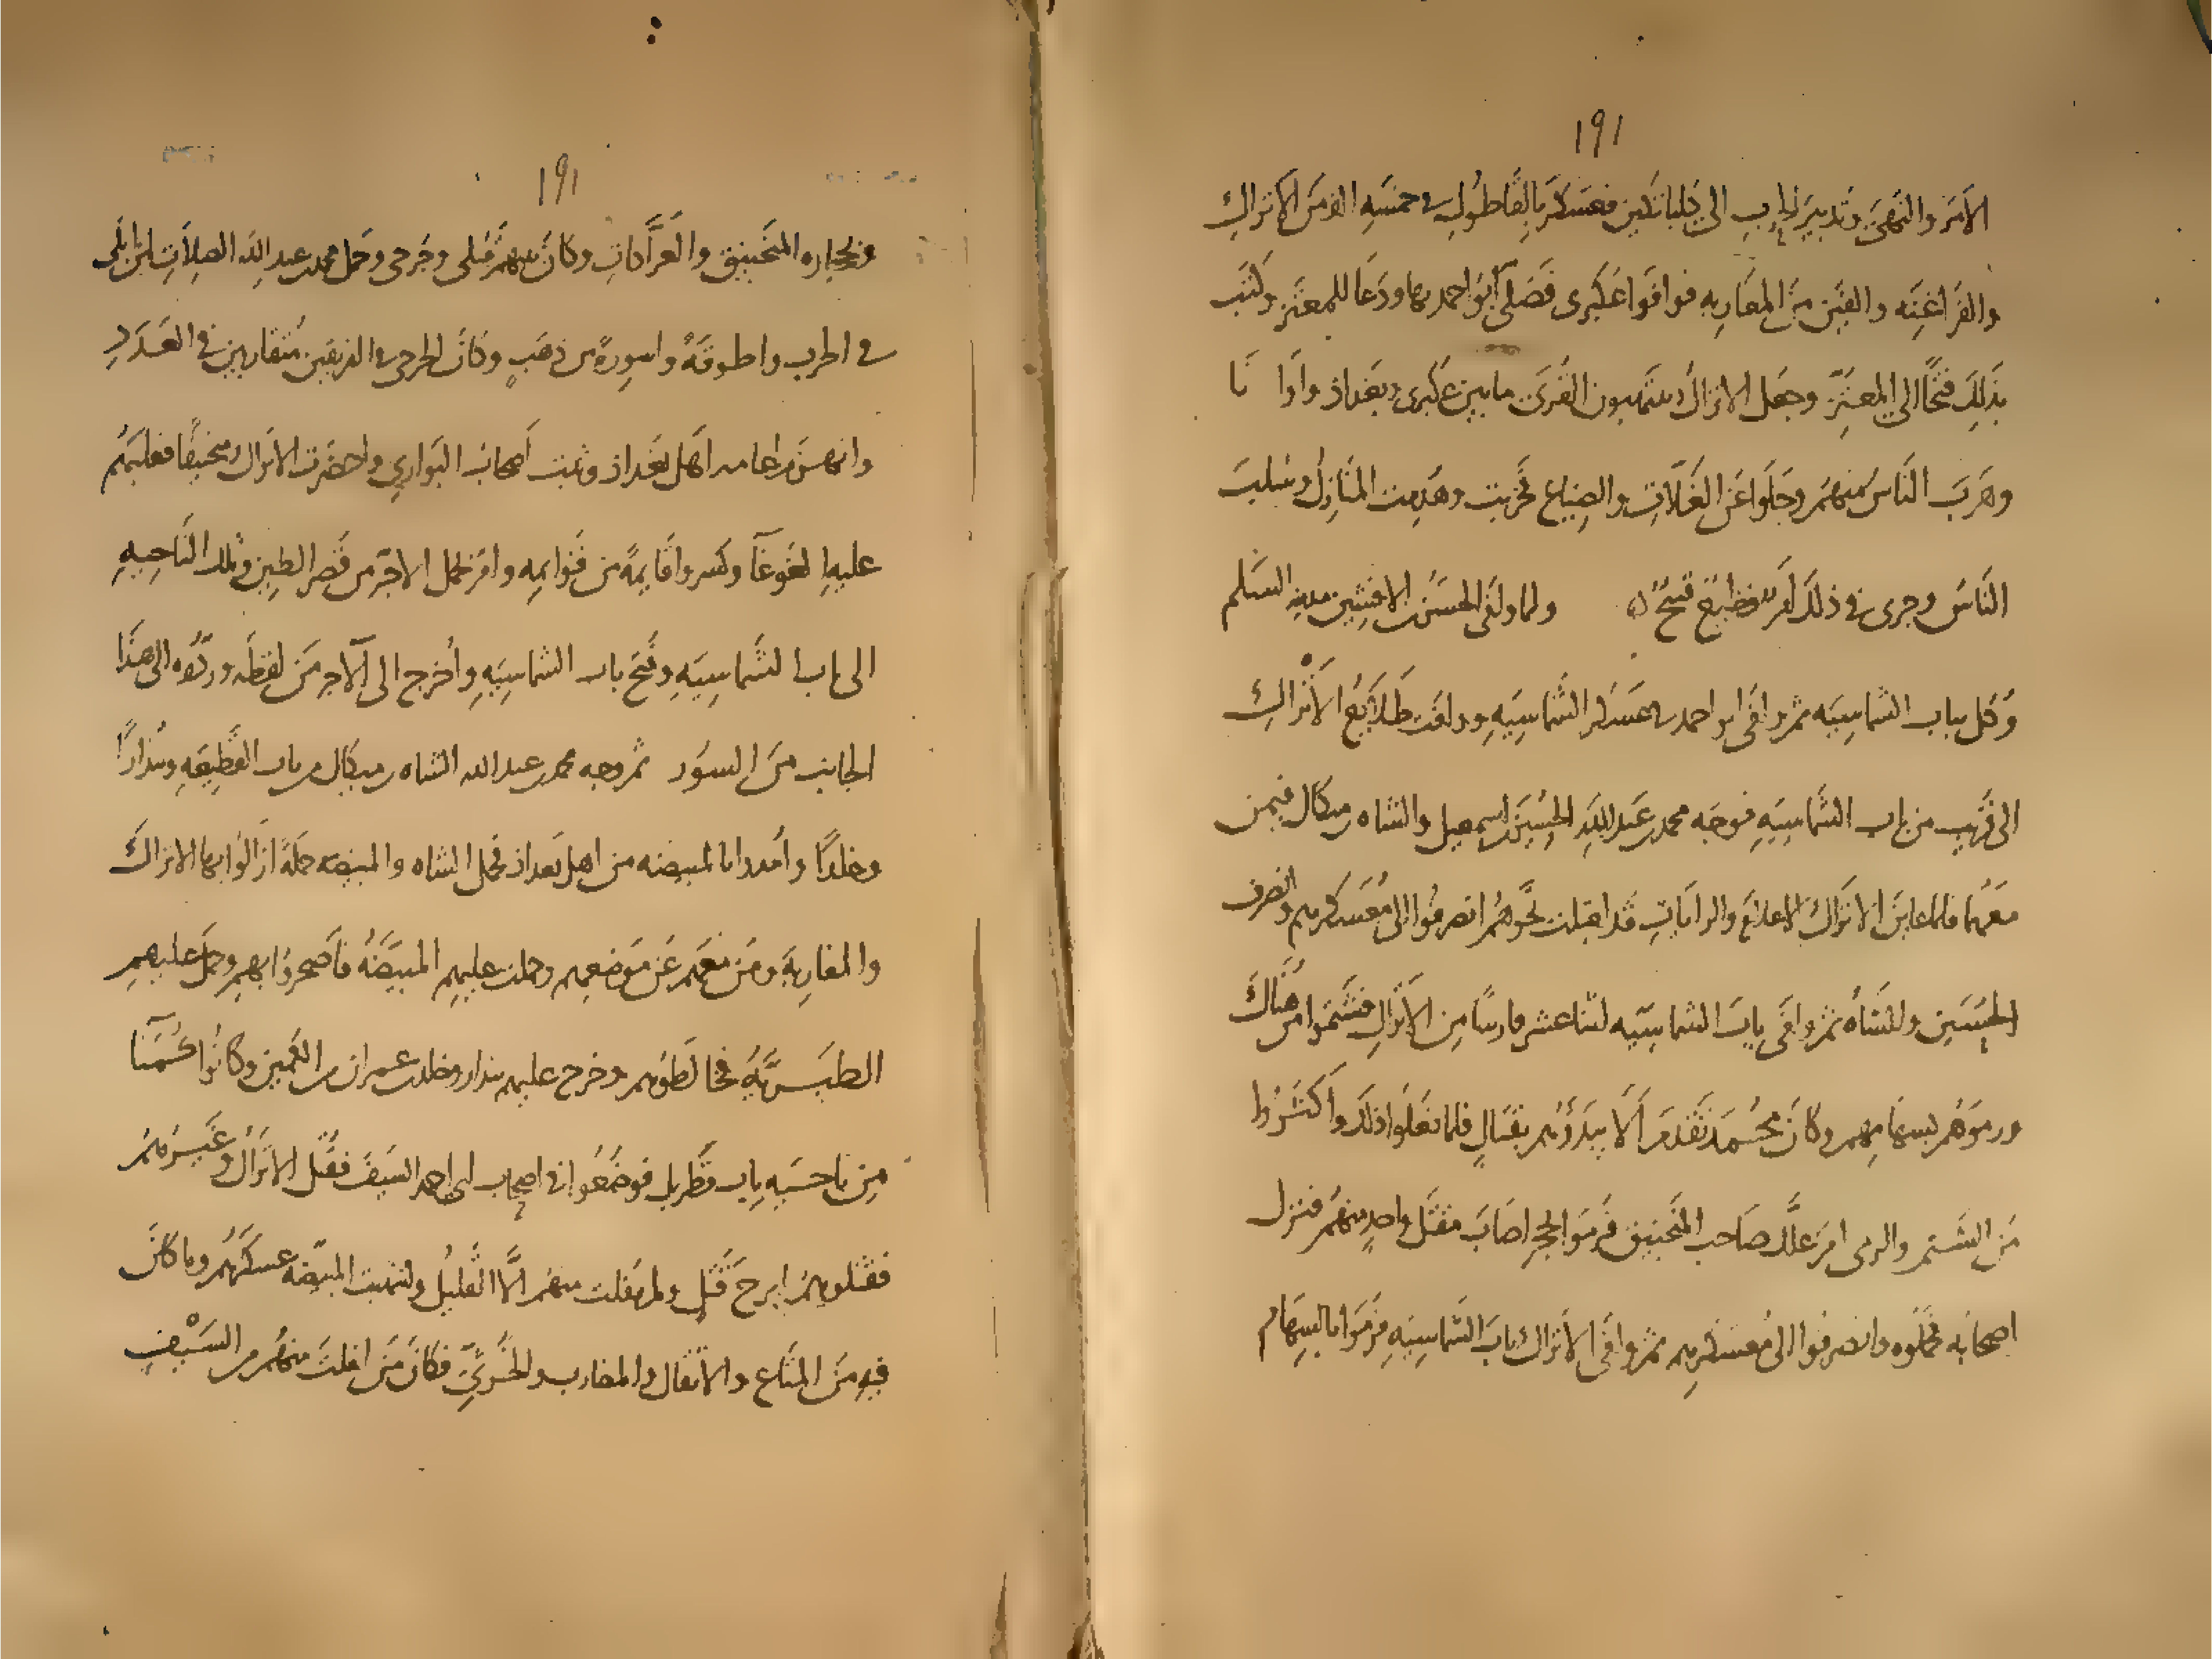 ١٩١
الامر والنهي وتدبير الحرب الى كلباتكين فعسكر بالقاطول في خمسه الف من الاتراك
والفراغنه والفين من المغاربه فوافوا عكبرى فصلى ابو احمد بها ودعا للمعتز وكتب
بذلك فتحا الى المعتز وجعل الاتراك ينتهبون القرى ما بين عكبرى وبغداد واوانا
وهرب الناس منهم وجلوا عن الغلات والضياع فخربت وهدمت المنازل وسلب
الناس وجرى في ذلك امر فظيع قبيح ولما ولى الحسن الافشين مدينه السلم
وكل بباب الشماسيه ثم وافى ابو احمد في عسكر الشماسيه ودلفت طلايع الاتراك
الى قريب من باب الشماسيه فوجه محمد بن عبد الله الحسين بن اسمعيل والشاه بن ميكال فيمن
معهما فلما عاين الاتراك الاعلام والرايات قد اقبلت نحوهم انصرفوا الى معسكرهم وانصرف
الحسين والشاه ثم وافى باب الشماسيه اثنا عشر فارسا من الاتراك فشتموا من هناك
ورموهم بسهامهم وكان محمد تقدم الا يبدوهم بقتال فلما فعلوا ذلك واكثروا
من الشتم والرمي امر علك صاحب المنجنيق فرموا بحجر اصاب فقتل واحد منهم فنزل
اصحابه فحملوه وانصرفوا الى معسكرهم ثم وافى الاتراك باب الشماسيه فرموا بالسهام
١٩١
وحجاره المنجنيق والعرادات وكان بينهم قتلى وجرحى وحمل محمد بن عبد الله الصلات لمن ابلى
في الحرب واطوقه واسوره من ذهب وكان الجرحى في الفريقين متقاربين في العدد
وانهزم اهل بغداد وثبت اصحاب البواري واحضرت الاتراك منجنيقا فغلبهم
عليها الغوغا وكسروا قايمه من قوايمه وامر بحمل الاجر من قصر الطين وتلك الناحيه
الى باب الشماسيه وفتح باب الشماسيه واخرج الى الآجر من لقطه وردوه الى هذا
الجانب من السور ثم وجه محمد بن عبد الله الشاه بن ميكال من باب القطيعه وبندارا
وخلدا وامدوا بالمبيضه من اهل بغداد فحمل الشاه والمبيضه حمله ازالوا بها الاتراك
والمغاربه ومن معهم عن موضعهم وحملت عليهم المبيضه فاصحروا بهم وحمل عليهم
الطبريه فخالطوهم وخرج عليهم بندار وخلد بن عمران من الكمين وكانوا كمنا
من ناحيه باب قطربل فوضعوا في اصحاب ابي احمد السيف فقتل الاتراك وغيرهم
فقتلوهم ابرح قتل ولم يفلت منهم الا القليل وانتهبت المبيضه عسكرهم وما كان
فيه من المتاع والاثقال والمضارب والخرثي فكان من افلت منهم من السيف